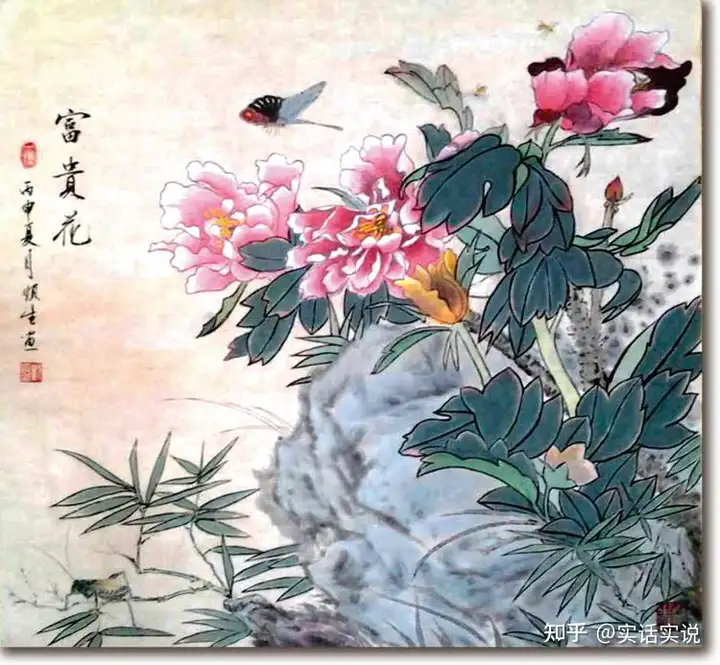 富貴花
丙申夏月生画
知乎 @实话实说